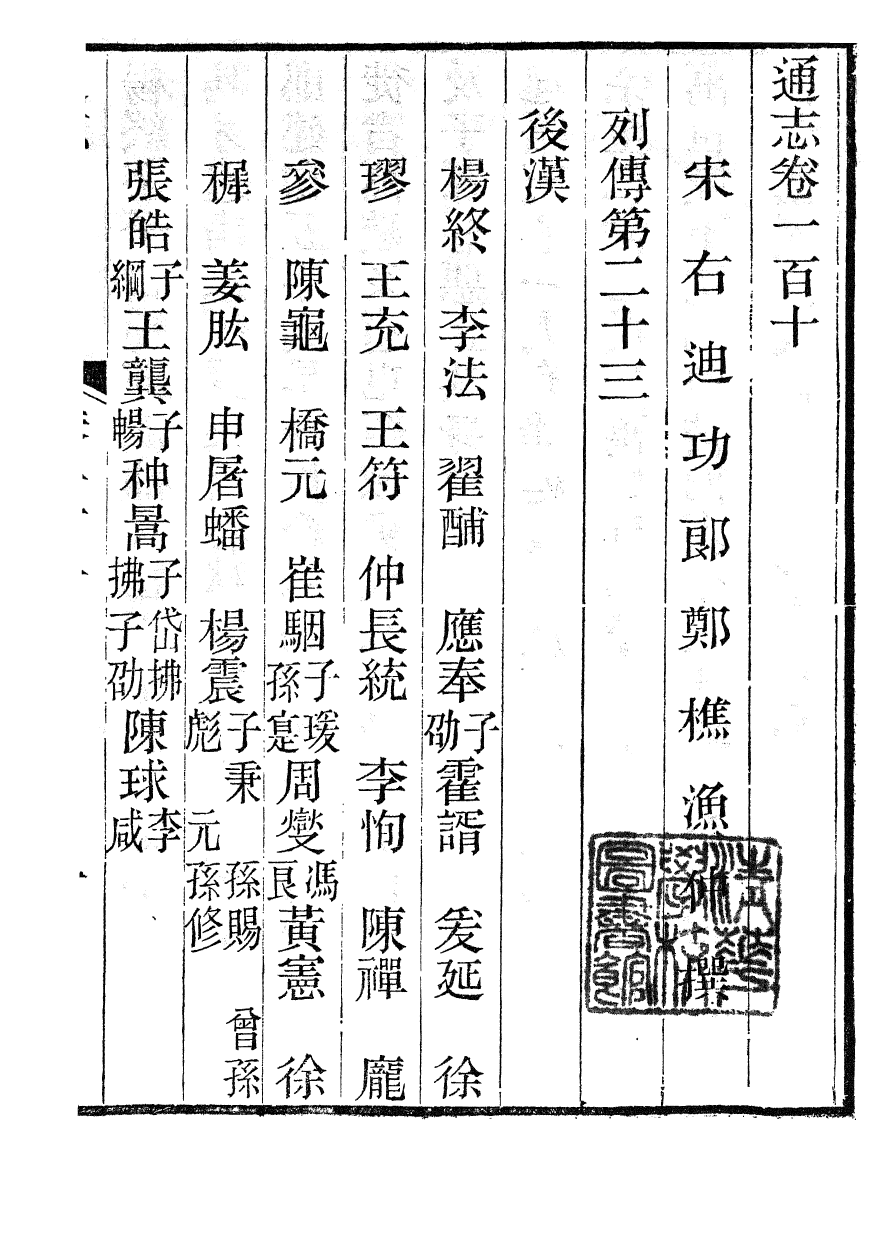 通志卷一百十
宋右迪功郎鄭樵漁仲撰
列傳第二十三
後漢
楊終 李法 翟酺 應奉子劭 霍諝 爰延 徐
璆 王充 王符 仲長統 李恂 陳禪 龐
參 陳龜 橋元 崔駰子瑗孫寔 周燮馮良 黃憲 徐
稺 姜肱 申屠蟠 楊震子秉 孫賜 曾孫彪 元孫修
張皓子綱 王龔子暢 种暠子岱拂 拂子劭 陳球李咸
清華學校圖書館